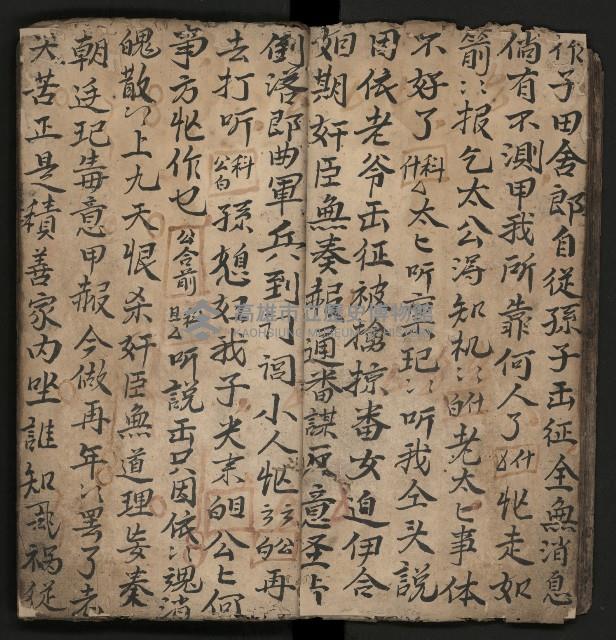 作子田舍郎自從孫子出征全無消息
倘有不測甲我所靠何人了 什 忙走如
箭〻報乞太公得知机〻 什白 老太〻事体
不好了 科 什 太〻听稟玘〻听我仝头說
因依老爷出征被擄掠番女迫伊合
姻期奸臣無奏報通番謀 意圣上
倒落郎曲軍兵到 問小人忙 公白 再
去打听 科 公白 孫媳 我子夫末 白 公〻何
事方忙作乜 公含前 听說出只因依〻魂消
魄散〻上九天恨杀奸臣無道理妄奏
朝廷玘毒意甲報今做再年〻罢了老
天苦正是積善家內坐誰知 祸從
高雄市立歷史博物館
KAOHSIUNG MUSEUM